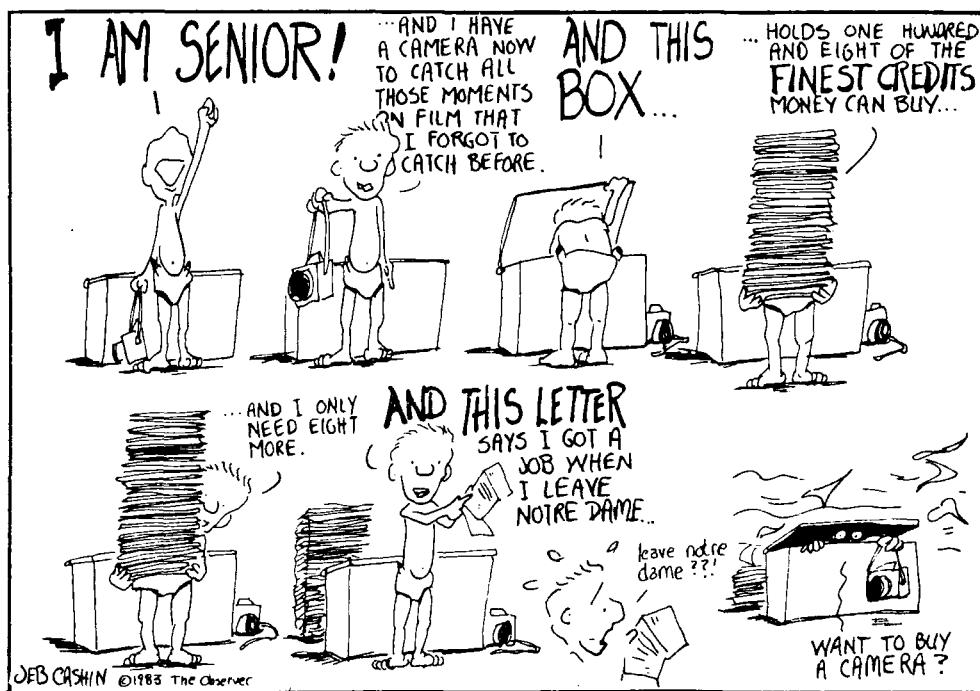 I AM SENIOR!
...AND I HAVE
A CAMERA NOW
TO CATCH ALL
THOSE MOMENTS
ON FILM THAT
I FORGOT TO
CATCH BEFORE.
AND THIS
BOX...
...HOLDS ONE HUNDRED
AND EIGHT OF THE
FINEST CREDITS
MONEY CAN BUY...
...AND I ONLY
NEED EIGHT
MORE.
AND THIS LETTER
SAYS I GOT A
JOB WHEN
I LEAVE
NOTRE DAME...
leave notre
dame??!
WANT TO BUY
A CAMERA?
JEB CASHIN ©1983 The Observer